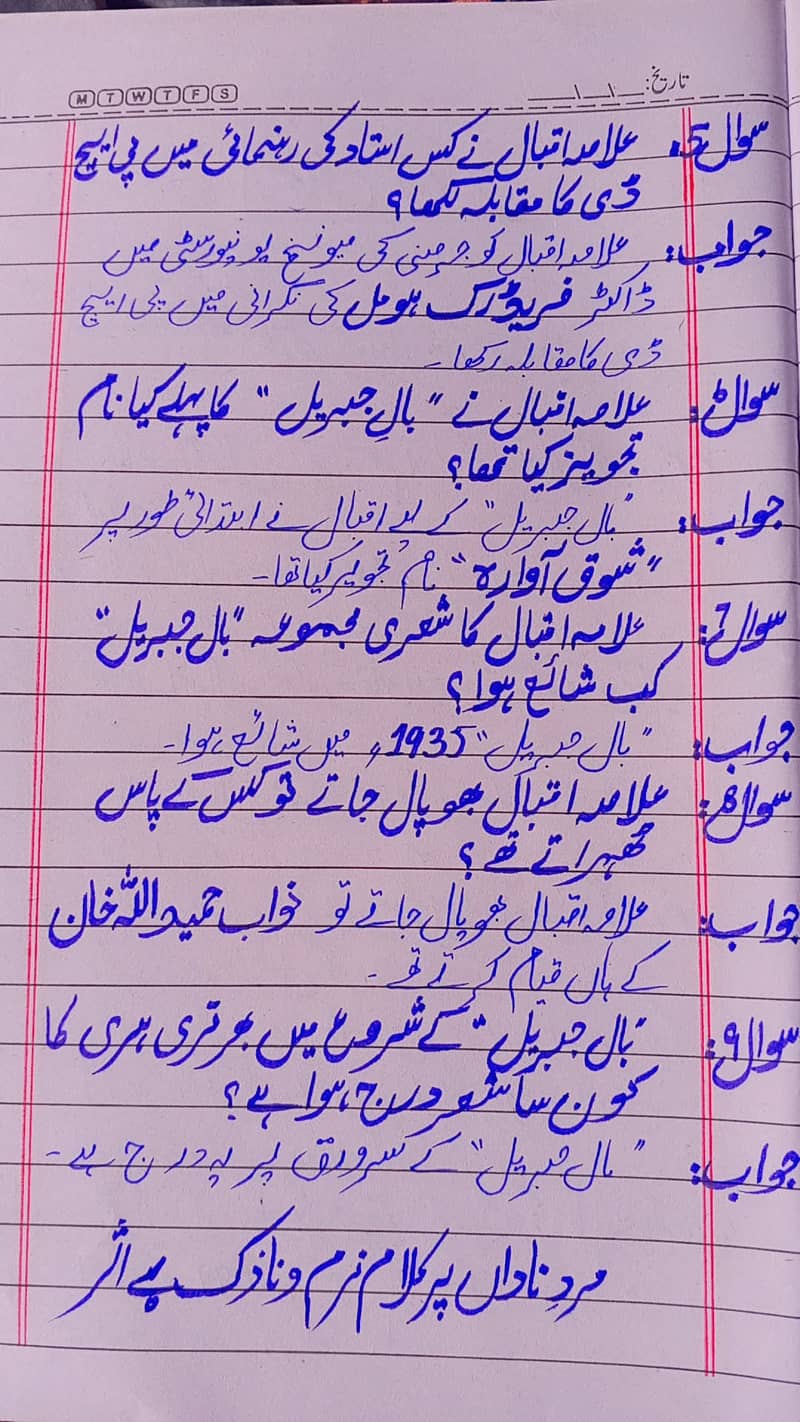 تاریخ: __\__\__
M T W T F S
سوال 5: علامہ اقبال نے کس استاد کی رہنمائی میں پی ایچ
ڈی کا مقابلہ لکھا؟
جواب: علامہ اقبال کو جرمنی کی میونخ یونیورسٹی میں
ڈاکٹر فریڈرک ہومل کی نگرانی میں پی ایچ
ڈی کا مقابلہ رکھا۔
سوال 6: علامہ اقبال نے "بالِ جبریل" کا پہلے کیا نام
تجویز کیا تھا؟
جواب: "بال جبریل" کے لیے اقبال نے ابتدائی طور پر
"شوق آوارہ" نام تجویز کیا تھا۔
سوال 7: علامہ اقبال کا شعری مجموعہ "بال جبریل"
کب شائع ہوا؟
جواب: "بال جبریل" 1935ء میں شائع ہوا۔
سوال 8: علامہ اقبال بھوپال جاتے تو کس کے پاس
ٹھہراتے تھے؟
جواب: علامہ اقبال بھوپال جاتے تو نواب حمید اللہ خان
کے ہاں قیام کرتے تھے۔
سوال ۹: "بال جبریل" کے شروع میں بھرتری ہری کا
کون سا شعر درج ہوا ہے؟
جواب: "بال جبریل" کے سرورق پر یہ درج ہے۔
مردِ ناداں پر کلام نرم و نازک بے اثر